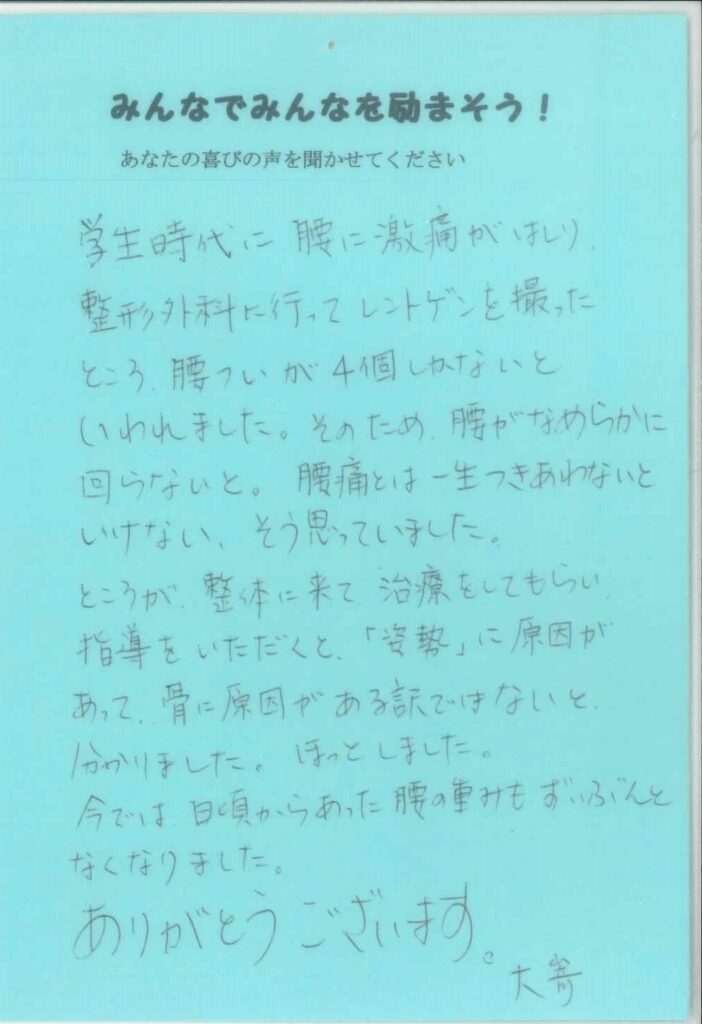 みんなでみんなを励まそう！
あなたの喜びの声を聞かせてください
学生時代に 腰に激痛がはしり、
整形外科に行って レントゲンを撮った
ところ、腰ついが 4個しかないと
いわれました。そのため、腰がなめらかに
回らないと。腰痛とは一生つきあわないと
いけない、そう思っていました。
ところが、整体に来て 治療をしてもらい、
指導をいただくと、「姿勢」に原因が
あって、骨に原因がある訳ではないと、
分かりました。ほっとしました。
今では、日頃からあった腰の重みもずいぶんと
なくなりました。
ありがとうございます。
大嵜